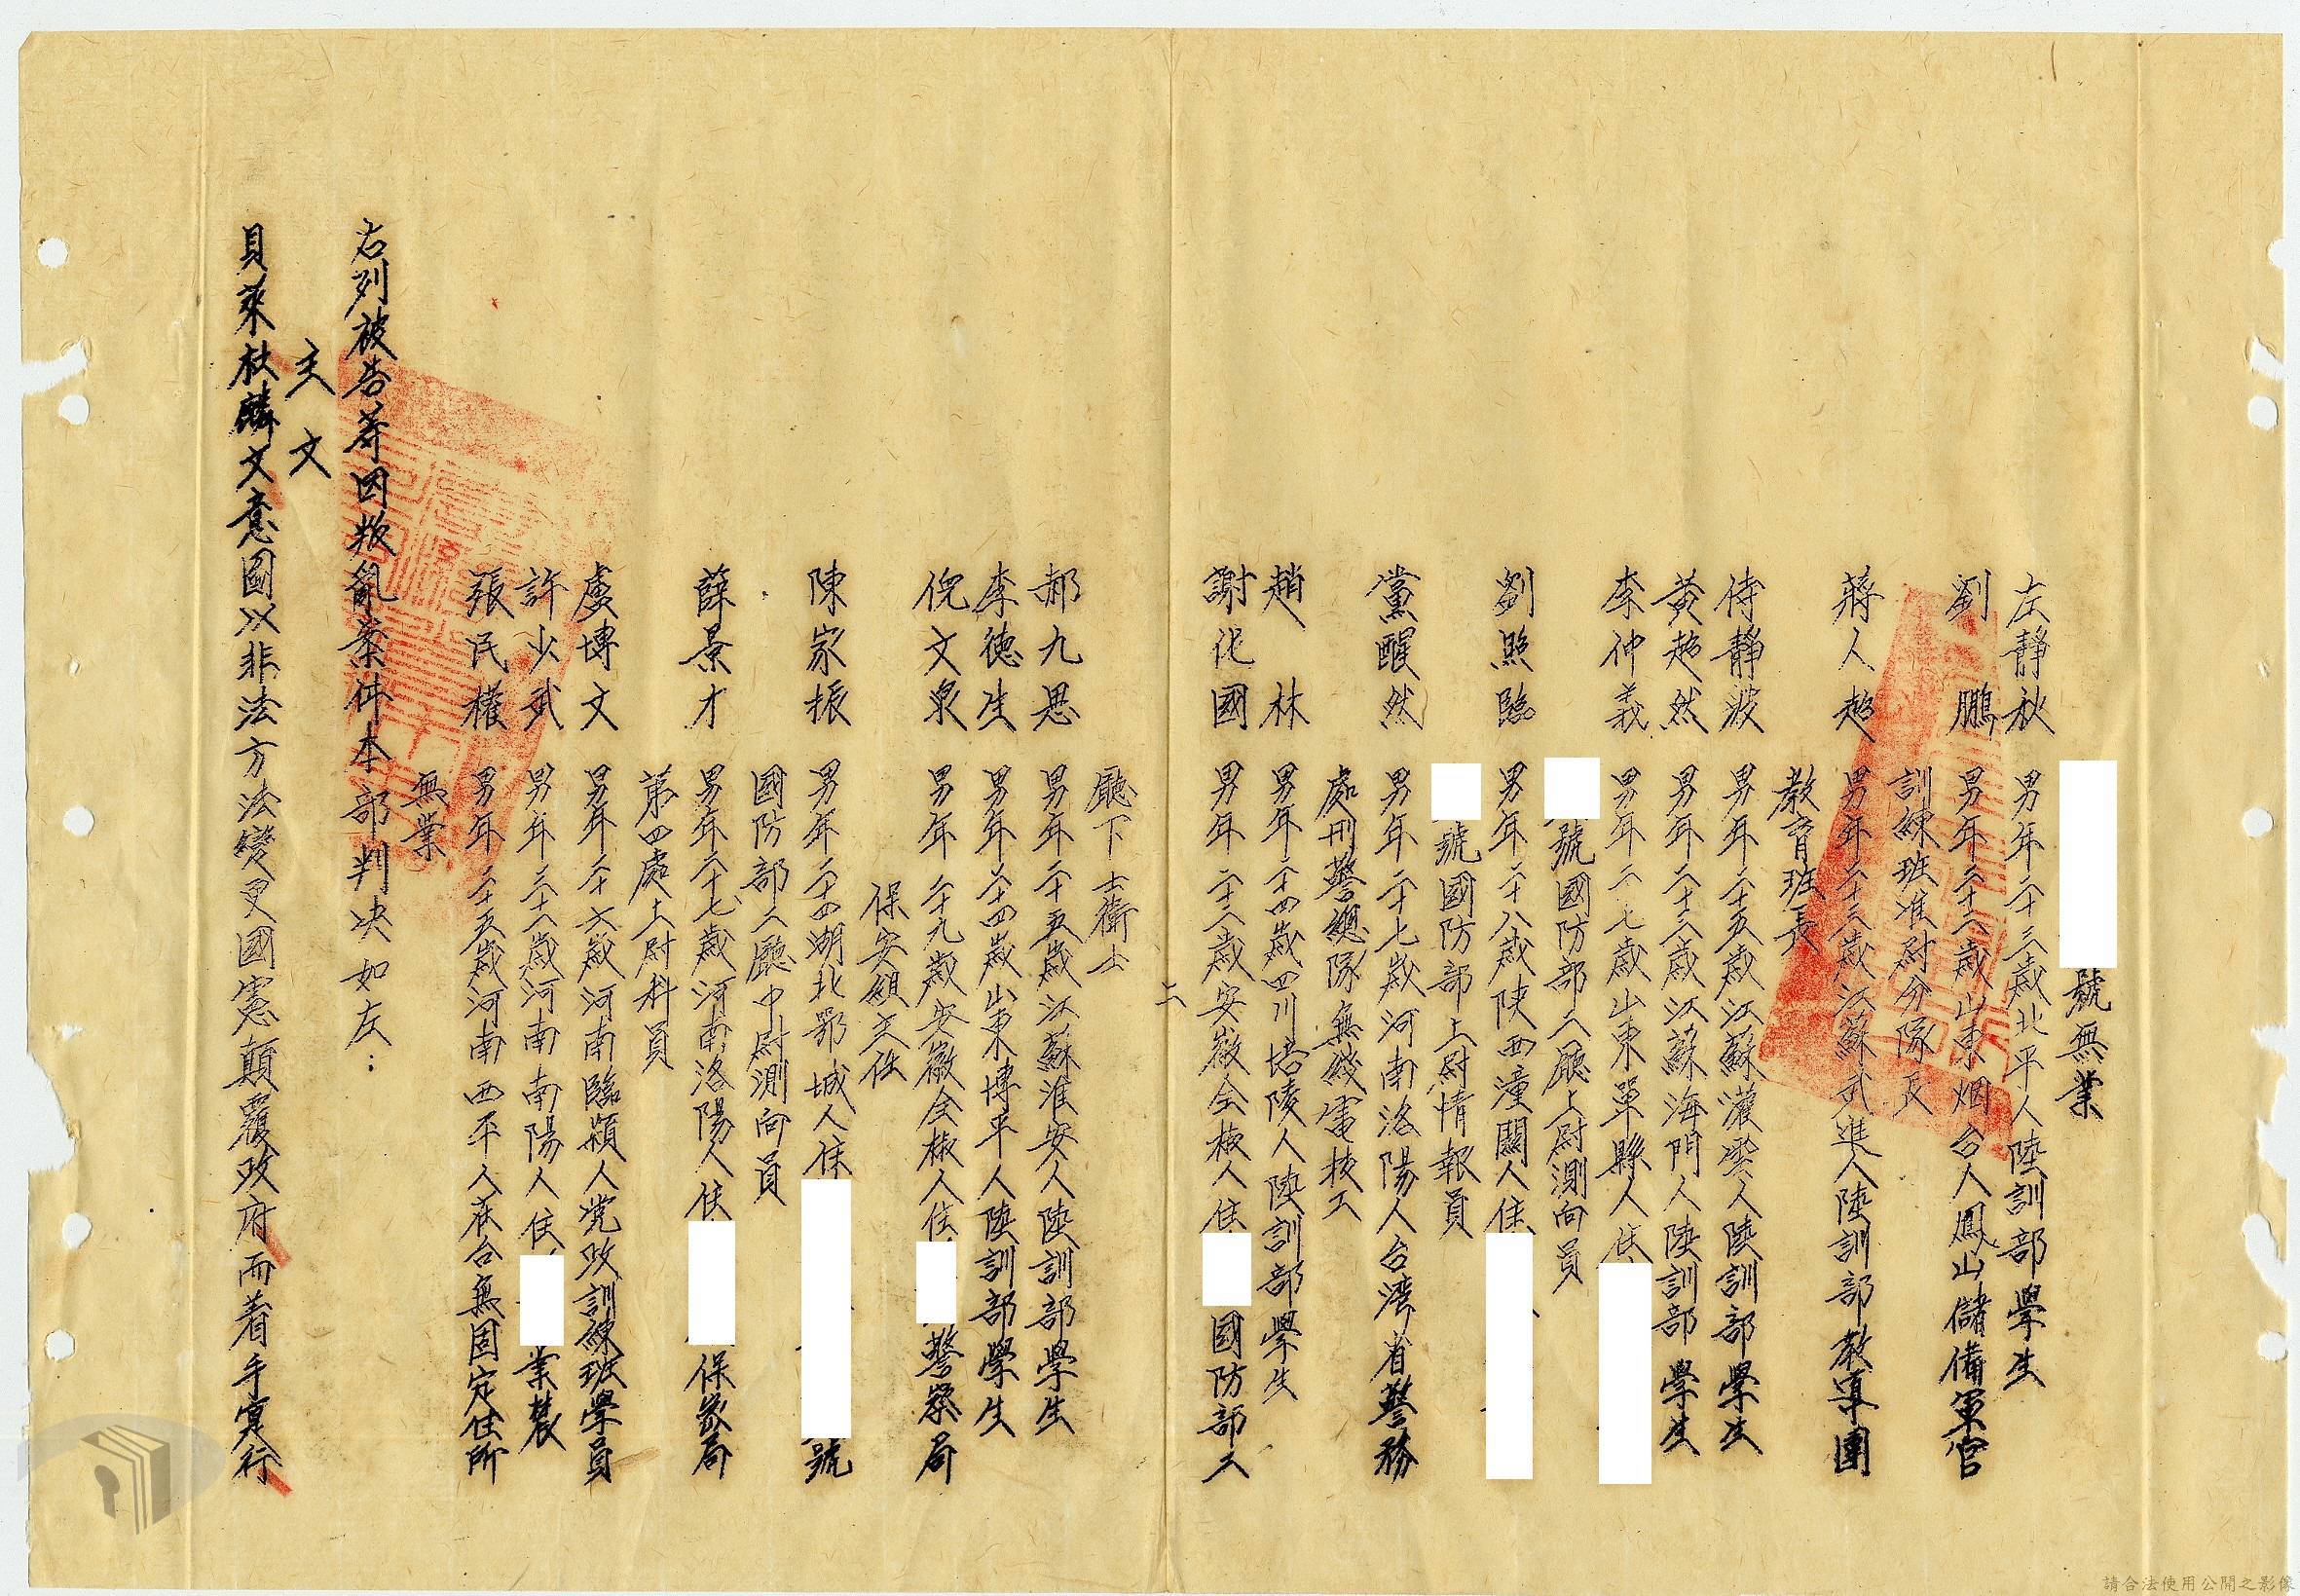 號無業
左靜秋 男年二十三歲北平人陸訓部學生
劉鵬 男年二十六歲山東烟台人鳳山儲備軍官
訓練班准尉分隊長
蔣人超 男年二十三歲江蘇武進人陸訓部教導團
教育班長
侍靜波 男年二十五歲江蘇灌雲人陸訓部學生
黃超然 男年二十三歲江蘇海門人陸訓部學生
李仲義 男年二七歲山東單縣人住
號國防部二廳上尉測向員
劉照臨 男年二十八歲陝西潼關人住
號國防部上尉情報員
黨醒然 男年二十七歲河南洛陽人台灣省警務
處刑警總隊無綫電技工
趙林 男年二十四歲四川涪陵人陸訓部學生
謝化國 男年二十二歲安徽全椒人住 國防部二
二
廳下士衛士
郝九思 男年二十五歲江蘇淮安人陸訓部學生
李德生 男年二十四歲山東博平人陸訓部學生
倪文泉 男年二十九歲安徽全椒人住 警察局
保安組主任
陳家振 男年二十四湖北鄂城人住 號
國防部二廳中尉測向員
薛景才 男年二十七歲河南洛陽人住 保密局
第四處上尉科員
虞博文 男年二十六歲河南臨潁人党政訓練班學員
許少武 男年三十二歲河南南陽人住 業農
張民權 男年二十五歲河南西平人在台無固定住所
無業
右列被告等因叛亂案件本部判决如左：
主文
貝萊杜麟文意圖以非法方法變更國憲顛覆政府而着手實行
請合法使用公開之影像